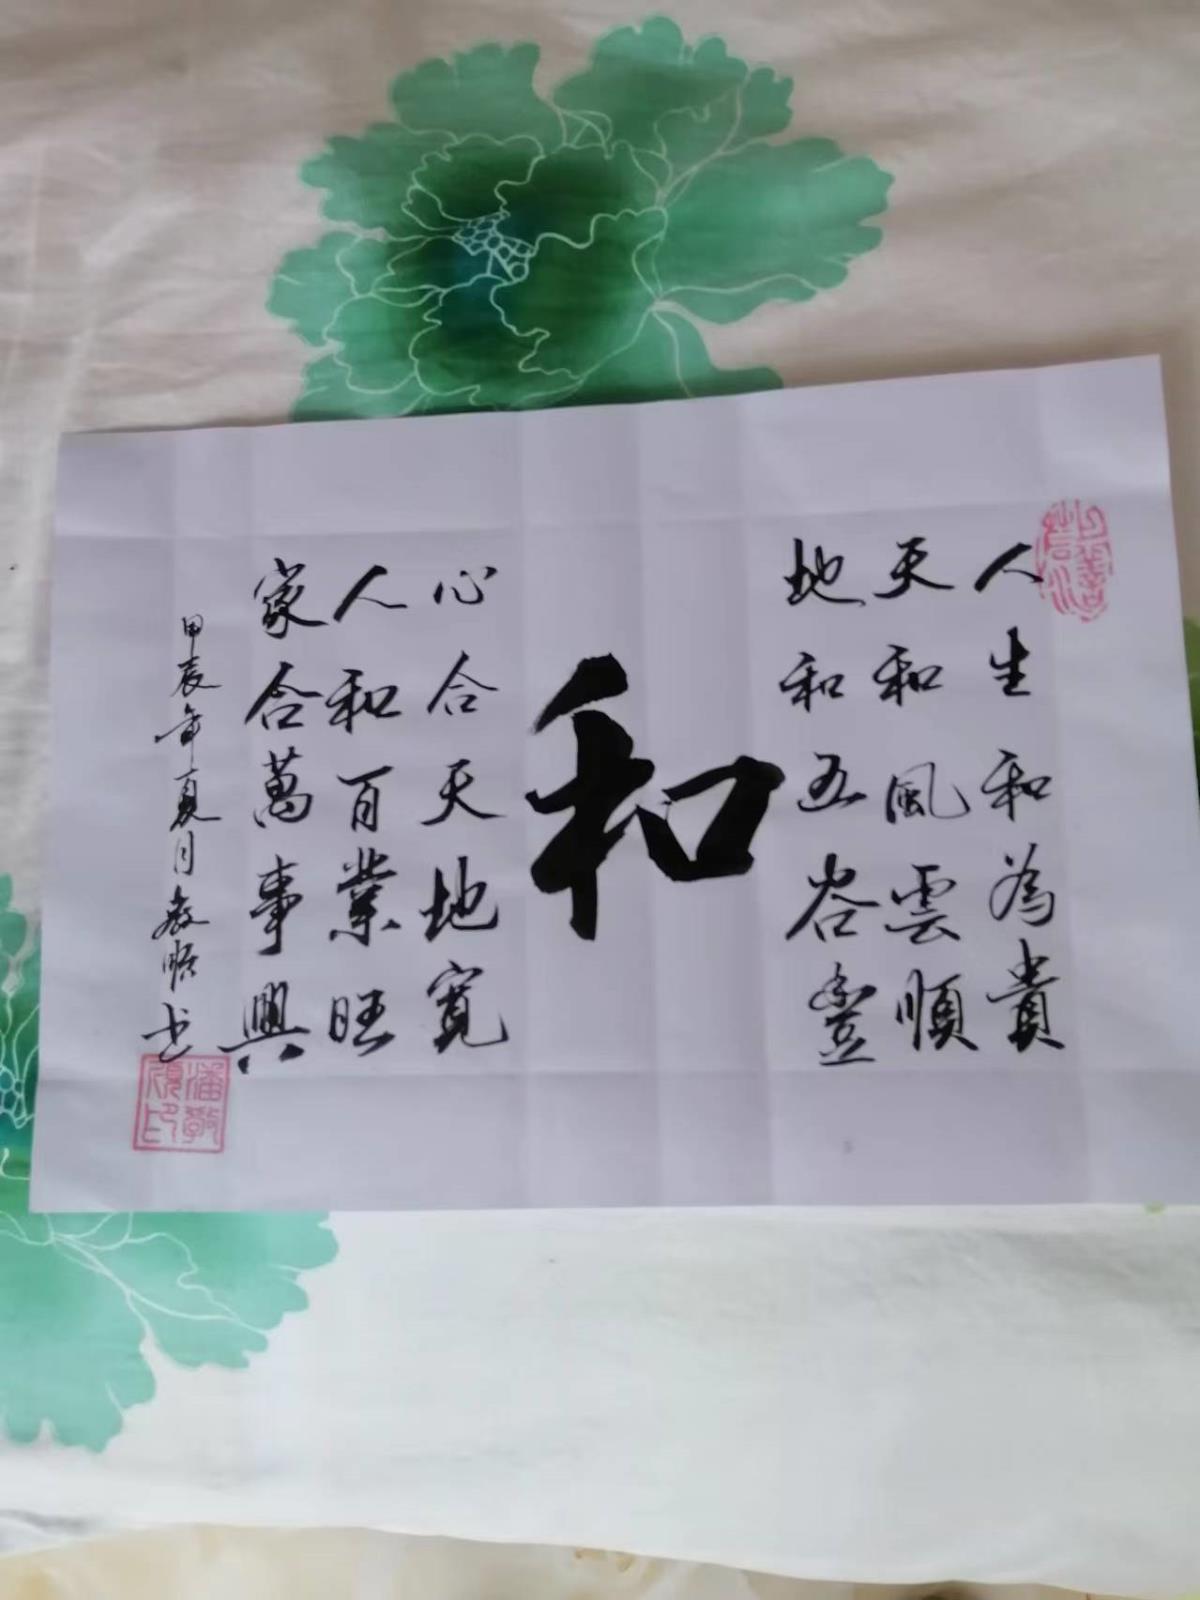 人生和為貴
天和風雲順
地和五谷豐
和
心合天地寬
人和百業旺
家合萬事興
甲辰年夏月敬順书
潘敬順印
上善若水